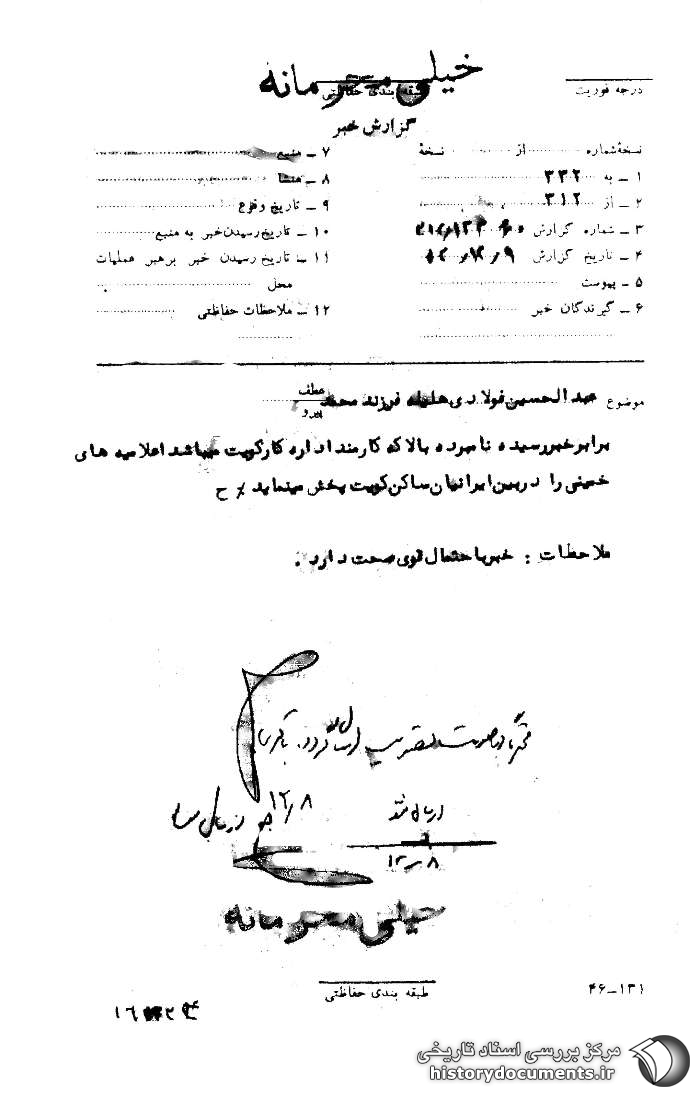 خیلی محرمانه
درجه فوریت
طبقه بندی حفاظتی
گزارش خبر
نسخهٔ شماره از نسخهٔ
۱ ـ به ۳۳۲
۲ ـ از ۳۱۲
۳ ـ شماره گزارش
۴ ـ تاریخ گزارش
۵ ـ پیوست
۶ ـ گیرندگان خبر
۷ ـ منبع
۸ ـ منشا
۹ ـ تاریخ وقوع
۱۰ ـ تاریخ رسیدن خبر به منبع
۱۱ ـ تاریخ رسیدن خبر برهبر عملیات
محل
۱۲ ـ ملاحظات حفاظتی
موضوع عبدالحسین فولادی هلیله فرزند محمد
عطف
پیرو
برابر خبر رسیده نامبرده بالا که کارمند اداره کار کویت میباشد اعلامیه های
خمینی را در بین ایرانیان ساکن کویت پخش مینماید ٪ ح
ملاحظات : خبر با احتمال قوی صحت دارد .
ارسال گردد.
۱۲/۸
ارسال شد
۱۲/۸
خیلی محرمانه
طبقه بندی حفاظتی
۴۶-۱۳۱
مرکز بررسی اسناد تاریخی
historydocuments.ir